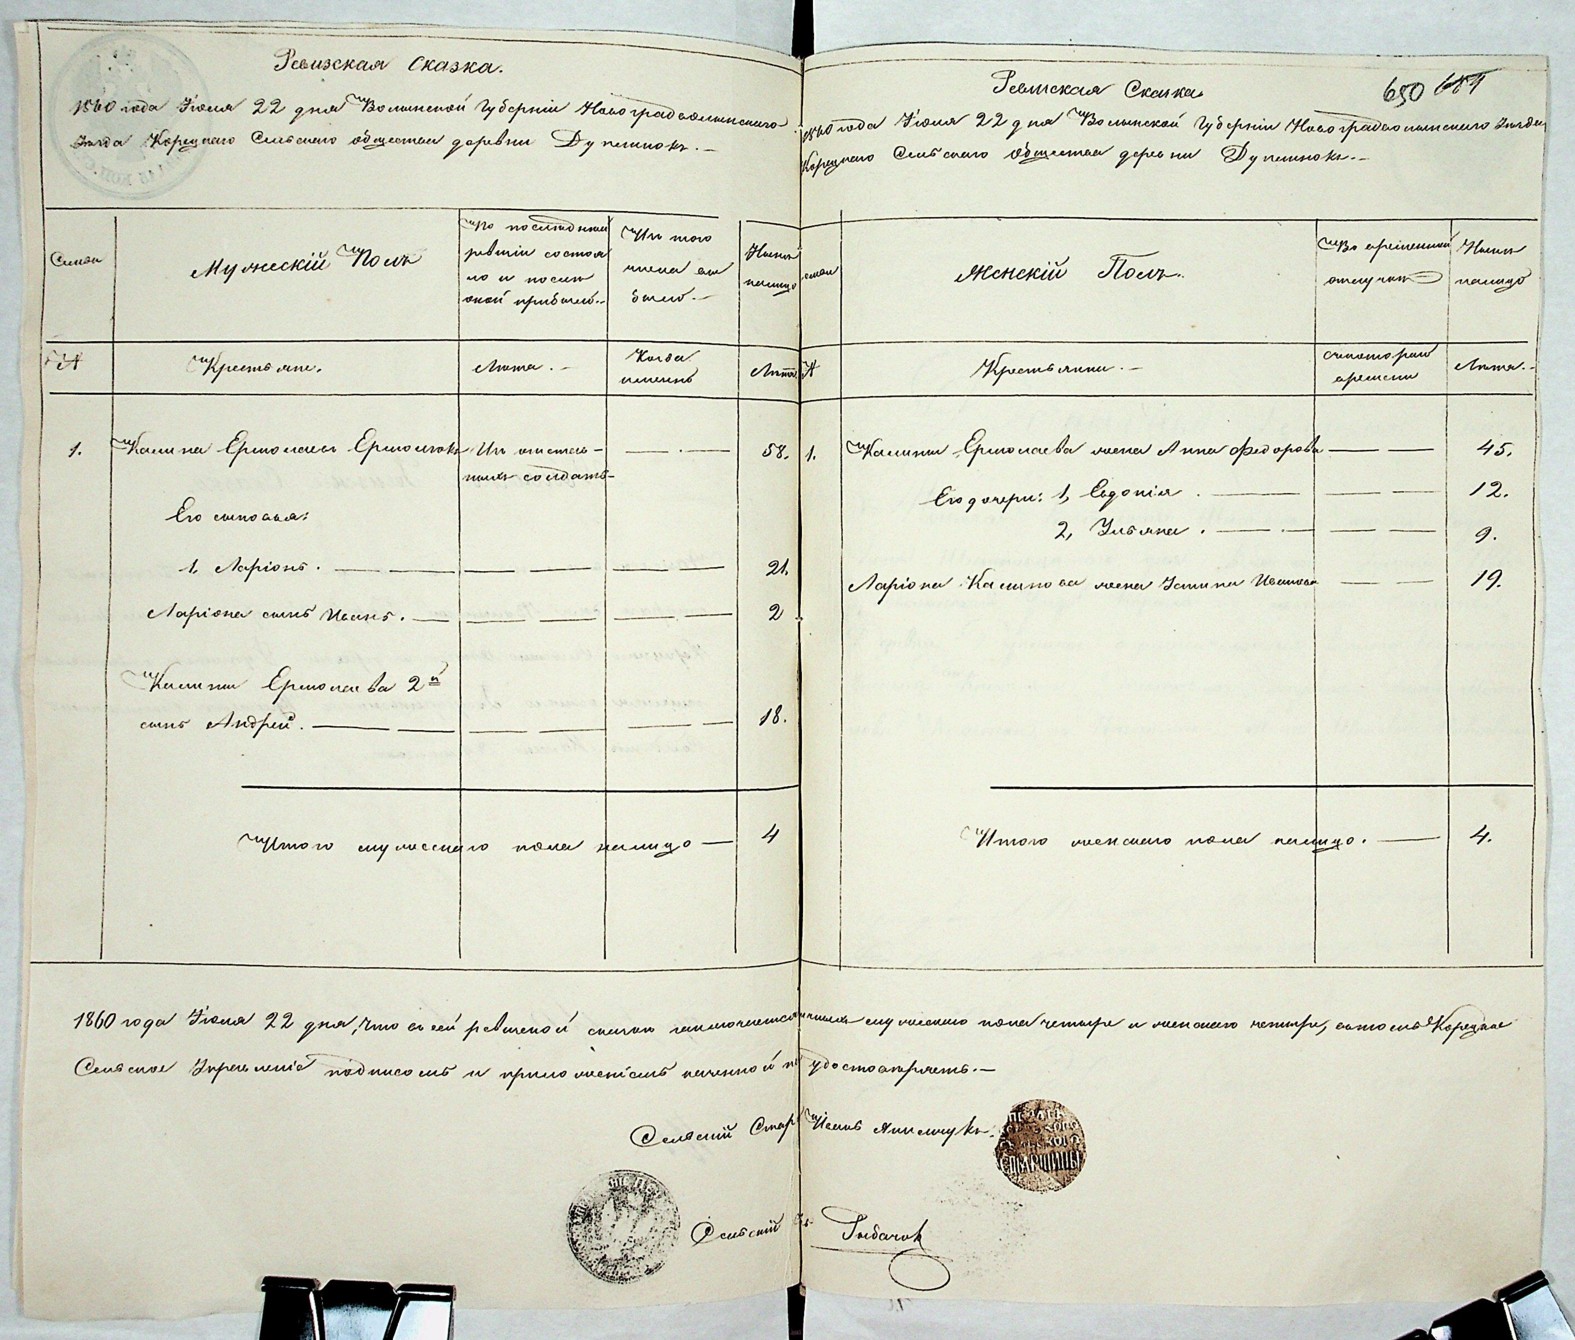 Ревизская Сказка.
1860 года Іюля 22 дня Волынской Губерніи Новоградволынского
уезда Корецкаго Сельскаго общества деревни Дуплинокъ.—
Семьи
Мужескій Полъ
По последней
ревизіи состоя
ло и после
оной прибыло.—
Изъ того
числа вы
было.—
Ныне
налицо
№
Крестьяне.
Лета.—
Когда
именно
Лета
1.
Калина Ермолаевъ Ермолюкъ
Изъ отстав—
ныхъ солдатъ—
58.
Его сыновья:
1, Ларіонъ.
21.
Ларіона сынъ Иванъ.
2
Калины Ермолаева 2й
сынъ Андрей.
18.
Итого мужескаго пола налицо—
4
Ревизская Сказка
650 651
1860 года Іюля 22 дня Волынской Губерніи Новоградволынского Уезда
Корецкаго Сельскаго Общества деревни Дуплинокъ.—
семьи
Женскій Полъ.
Во временной
отлучке
Ныне
налицо
№
Крестьянки.—
съ котораго
времени
Лета.—
1.
Калины Ермолаева жена Анна Федорова
45.
Его дочери: 1, Евдокія
12.
2, Ульяна.
9.
Ларіона Калинова жена Устина Иванова
19.
Итого женскаго пола налицо.
4.
1860 года Іюля 22 дня, что в сей ревизской сказке заключается налицо мужескаго пола четыре и женскаго четыре, въ томъ Корецкое
Сельское Управленіе подписомъ и приложеніемъ печати удостоверяетъ.—
Сельскій Стар Исакъ
ПЕЧАТЬ
СТАРШИНЫ
Сельскій Рыбачок